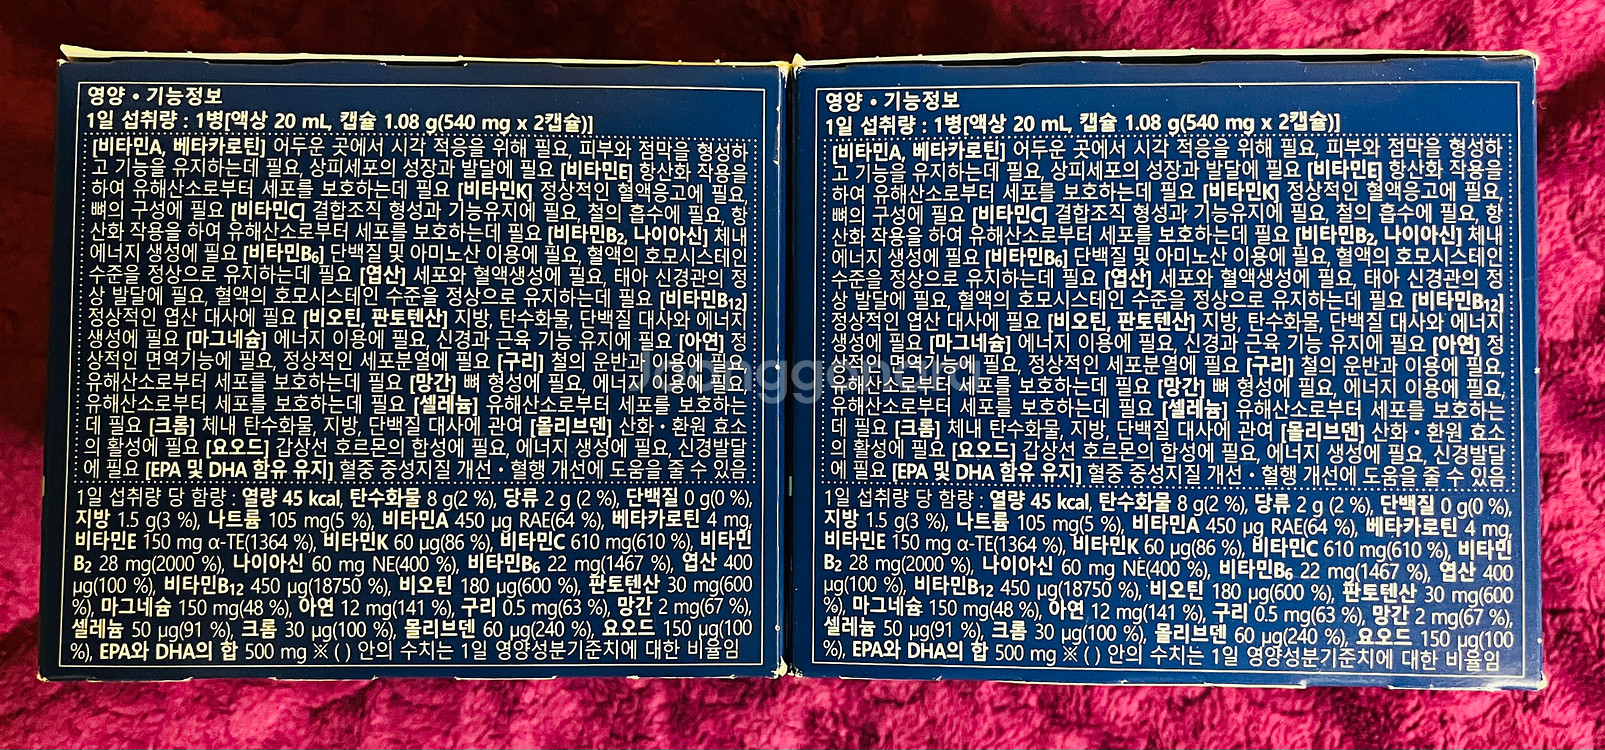 영양 • 기능정보
1일 섭취량 : 1병[액상 20 mL, 캡슐 1.08 g(540 mg x 2캡슐)]
[비타민A, 베타카로틴] 어두운 곳에서 시각 적응을 위해 필요, 피부와 점막을 형성하
고 기능을 유지하는데 필요, 상피세포의 성장과 발달에 필요 [비타민E] 항산화 작용을
하여 유해산소로부터 세포를 보호하는데 필요 [비타민K] 정상적인 혈액응고에 필요,
뼈의 구성에 필요 [비타민C] 결합조직 형성과 기능유지에 필요, 철의 흡수에 필요, 항
산화 작용을 하여 유해산소로부터 세포를 보호하는데 필요 [비타민B₂, 나이아신] 체내
에너지 생성에 필요 [비타민B₆] 단백질 및 아미노산 이용에 필요, 혈액의 호모시스테인
수준을 정상으로 유지하는데 필요 [엽산] 세포와 혈액생성에 필요, 태아 신경관의 정
상 발달에 필요, 혈액의 호모시스테인 수준을 정상으로 유지하는데 필요 [비타민B₁₂]
정상적인 엽산 대사에 필요 [비오틴, 판토텐산] 지방, 탄수화물, 단백질 대사와 에너지
생성에 필요 [마그네슘] 에너지 이용에 필요, 신경과 근육 기능 유지에 필요 [아연] 정
상적인 면역기능에 필요, 정상적인 세포분열에 필요 [구리] 철의 운반과 이용에 필요,
유해산소로부터 세포를 보호하는데 필요 [망간] 뼈 형성에 필요, 에너지 이용에 필요,
유해산소로부터 세포를 보호하는데 필요 [셀레늄] 유해산소로부터 세포를 보호하는
데 필요 [크롬] 체내 탄수화물, 지방, 단백질 대사에 관여 [몰리브덴] 산화 · 환원 효소
의 활성에 필요 [요오드] 갑상선 호르몬의 합성에 필요, 에너지 생성에 필요, 신경발달
에 필요 [EPA 및 DHA 함유 유지] 혈중 중성지질 개선 · 혈행 개선에 도움을 줄 수 있음
1일 섭취량 당 함량 : 열량 45 kcal, 탄수화물 8 g(2 %), 당류 2 g (2 %), 단백질 0 g(0 %),
지방 1.5 g(3 %), 나트륨 105 mg(5 %), 비타민A 450 µg RAE(64 %), 베타카로틴 4 mg,
비타민E 150 mg α-TE(1364 %), 비타민K 60 µg(86 %), 비타민C 610 mg(610 %), 비타민
B₂ 28 mg(2000 %), 나이아신 60 mg NE(400 %), 비타민B₆ 22 mg(1467 %), 엽산 400
µg(100 %), 비타민B₁₂ 450 µg(18750 %), 비오틴 180 µg(600 %), 판토텐산 30 mg(600
%), 마그네슘 150 mg(48 %), 아연 12 mg(141 %), 구리 0.5 mg(63 %), 망간 2 mg(67 %),
셀레늄 50 µg(91 %), 크롬 30 µg(100 %), 몰리브덴 60 µg(240 %), 요오드 150 µg(100
%), EPA와 DHA의 합 500 mg ※ ( ) 안의 수치는 1일 영양성분기준치에 대한 비율임
영양 • 기능정보
1일 섭취량 : 1병[액상 20 mL, 캡슐 1.08 g(540 mg x 2캡슐)]
[비타민A, 베타카로틴] 어두운 곳에서 시각 적응을 위해 필요, 피부와 점막을 형성하
고 기능을 유지하는데 필요, 상피세포의 성장과 발달에 필요 [비타민E] 항산화 작용을
하여 유해산소로부터 세포를 보호하는데 필요 [비타민K] 정상적인 혈액응고에 필요,
뼈의 구성에 필요 [비타민C] 결합조직 형성과 기능유지에 필요, 철의 흡수에 필요, 항
산화 작용을 하여 유해산소로부터 세포를 보호하는데 필요 [비타민B₂, 나이아신] 체내
에너지 생성에 필요 [비타민B₆] 단백질 및 아미노산 이용에 필요, 혈액의 호모시스테인
수준을 정상으로 유지하는데 필요 [엽산] 세포와 혈액생성에 필요, 태아 신경관의 정
상 발달에 필요, 혈액의 호모시스테인 수준을 정상으로 유지하는데 필요 [비타민B₁₂]
정상적인 엽산 대사에 필요 [비오틴, 판토텐산] 지방, 탄수화물, 단백질 대사와 에너지
생성에 필요 [마그네슘] 에너지 이용에 필요, 신경과 근육 기능 유지에 필요 [아연] 정
상적인 면역기능에 필요, 정상적인 세포분열에 필요 [구리] 철의 운반과 이용에 필요,
유해산소로부터 세포를 보호하는데 필요 [망간] 뼈 형성에 필요, 에너지 이용에 필요,
유해산소로부터 세포를 보호하는데 필요 [셀레늄] 유해산소로부터 세포를 보호하는
데 필요 [크롬] 체내 탄수화물, 지방, 단백질 대사에 관여 [몰리브덴] 산화 · 환원 효소
의 활성에 필요 [요오드] 갑상선 호르몬의 합성에 필요, 에너지 생성에 필요, 신경발달
에 필요 [EPA 및 DHA 함유 유지] 혈중 중성지질 개선 · 혈행 개선에 도움을 줄 수 있음
1일 섭취량 당 함량 : 열량 45 kcal, 탄수화물 8 g(2 %), 당류 2 g (2 %), 단백질 0 g(0 %),
지방 1.5 g(3 %), 나트륨 105 mg(5 %), 비타민A 450 µg RAE(64 %), 베타카로틴 4 mg,
비타민E 150 mg α-TE(1364 %), 비타민K 60 µg(86 %), 비타민C 610 mg(610 %), 비타민
B₂ 28 mg(2000 %), 나이아신 60 mg NE(400 %), 비타민B₆ 22 mg(1467 %), 엽산 400
µg(100 %), 비타민B₁₂ 450 µg(18750 %), 비오틴 180 µg(600 %), 판토텐산 30 mg(600
%), 마그네슘 150 mg(48 %), 아연 12 mg(141 %), 구리 0.5 mg(63 %), 망간 2 mg(67 %),
셀레늄 50 µg(91 %), 크롬 30 µg(100 %), 몰리브덴 60 µg(240 %), 요오드 150 µg(100
%), EPA와 DHA의 합 500 mg ※ ( ) 안의 수치는 1일 영양성분기준치에 대한 비율임
Joonggonara